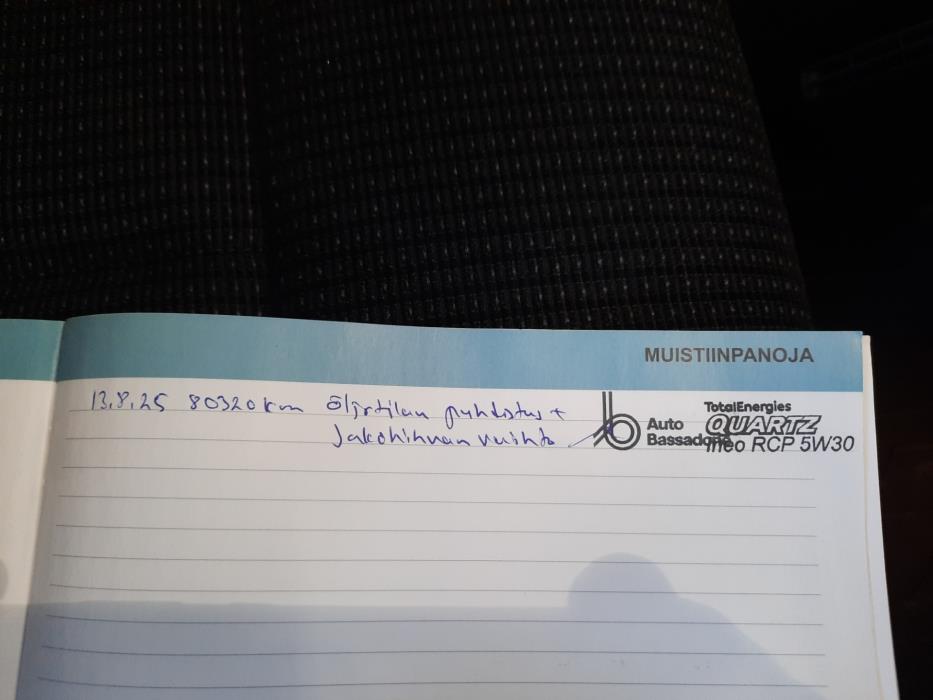 MUISTIINPANOJA
13.8.25 80320 km Öljytilan puhdistus +
Jakohihnan vaihto
Auto
Bassadone
TotalEnergies
QUARTZ
ineo RCP 5W30